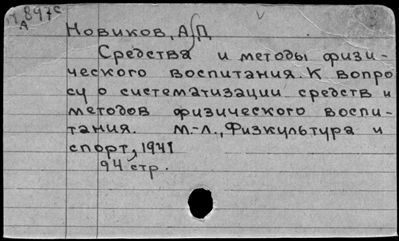 А 897с
Новиков, А Д
Средства и методы физи-
ческого воспитания. К вопро
су о систематизации средств и
методов физического воспи-
тания. М.-Л., Физкультура и
спорт, 1941
94 стр.